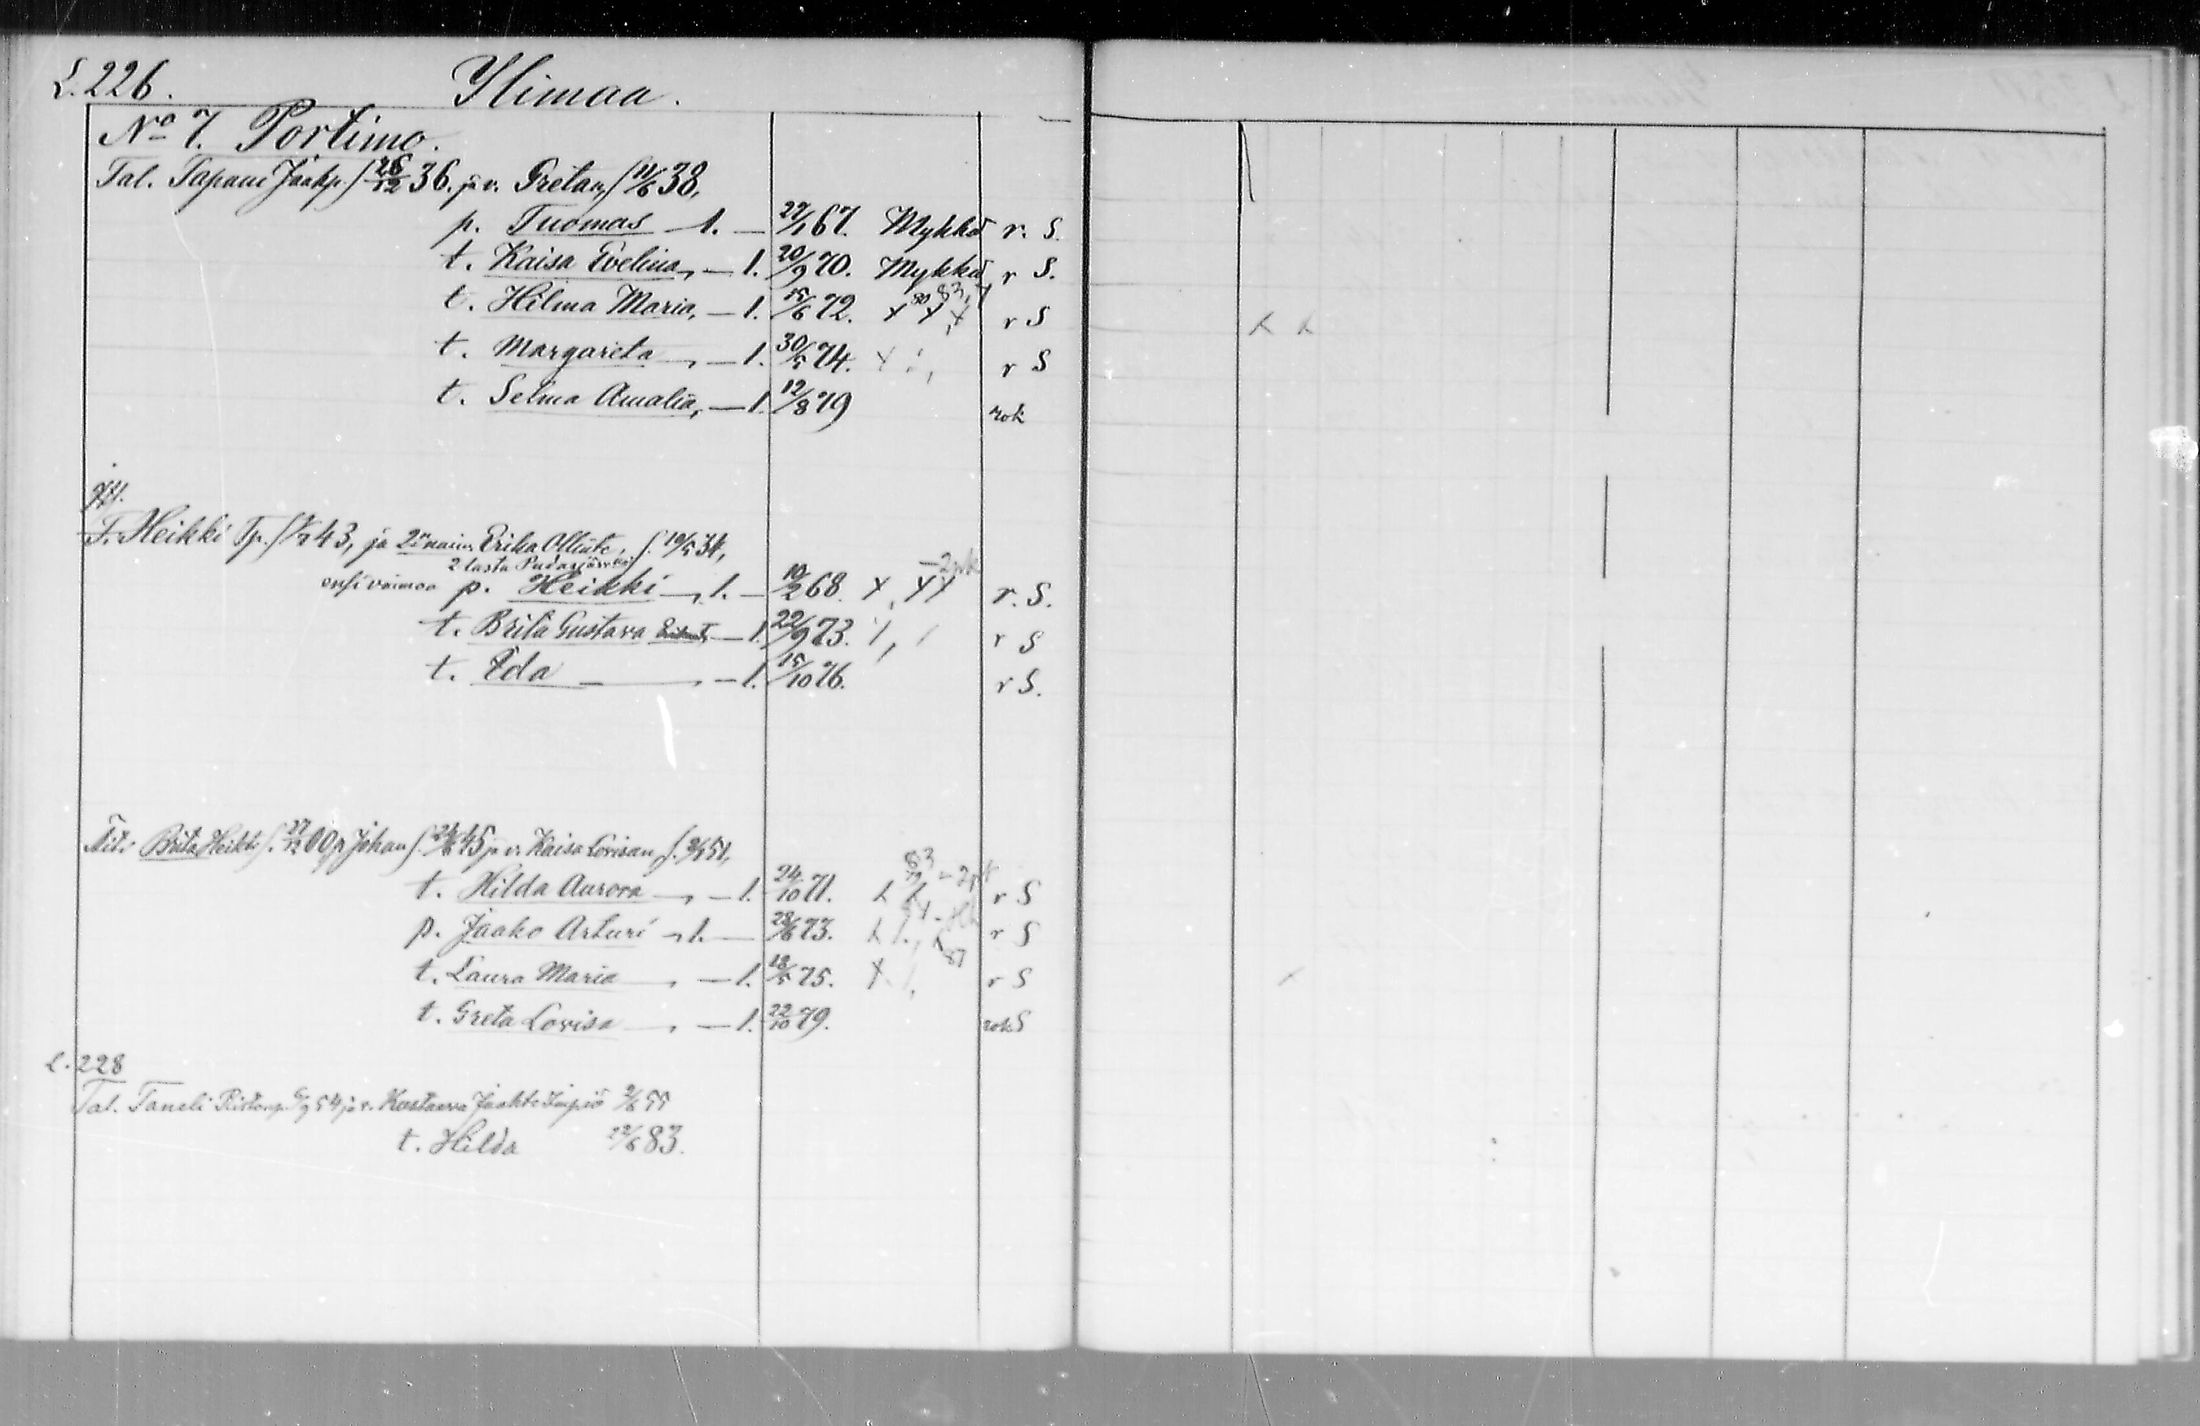 L. 226. Ylimaa.
No 7. Portimo.
Tal. Tapani Jaakp. f 26/12 36. ja v. Gretan f 11/6 38,
p. Tuomas 1. — 27/1 67. Mykkä r. S.
t. Kaisa Evelina, — 1. 20/9 70. Mykkä r S.
t. Hilma Maria, — 1. 15/6 72. x x x 80 83, r S
t. Margareta, — 1. 30/5 74. x r S
t. Selma Amalia, — 1. 12/8 79 rok
T. Heikki Tp. 43, ja 2n naim. Erika Ollint. f. 19/5 34,
2 lasta Pudasjärvellä
ensi vaimon p. Heikki — 1. — 10/2 68. x, x x – 2 r. S.
t. Brita Gustava — 1. 22/9 73. r S
t. Eda — — 1. 15/10 76. r S.
Äiti Brita Heikk f. 27/12 00, p Johan f. 45 ja v. Kaisa Lovisan f. 51,
t. Hilda Aurora — 1. 24/10 71. 83 r S
p. Jaako Arturi — 1. — 28/6 73. r S
t. Laura Maria, — 1. 18/5 75. x 87 r S
t. Greta Lovisa, — 1. 22/10 79. rok S
L. 228
Tal. Taneli 54 ja v. Kustaava Jaakt. Impiö 2/6 55
t. Hilda 22/6 83.